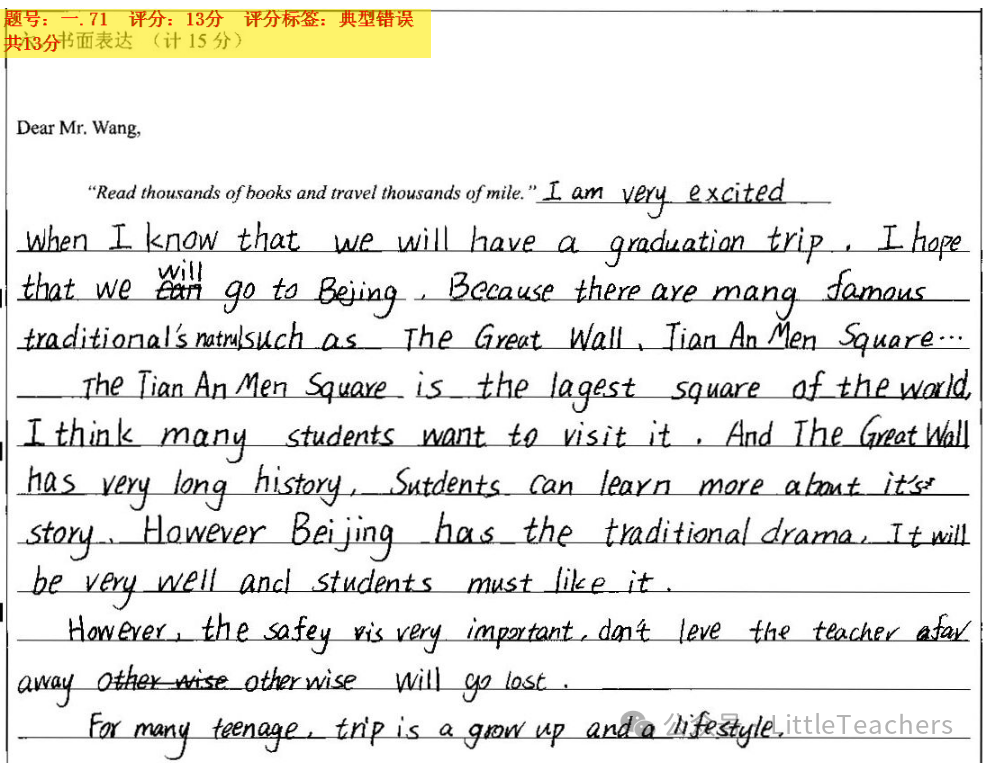 题号：一.71 评分：13分 评分标签：典型错误
共13分 书面表达 （计 15 分）
Dear Mr. Wang,
"Read thousands of books and travel thousands of mile." I am very excited
when I know that we will have a graduation trip. I hope
that we will go to Bejing. Because there are mang famous
traditional's such as The Great Wall、Tian An Men Square…
The Tian An Men Square is the lagest square of the world,
I think many students want to visit it. And The Great Wall
has very long history, Sutdents can learn more about it's
story. However Beijing has the traditional drama. It will
be very well and students must like it.
However, the safey is very important, don't leve the teacher afar
away other wise otherwise will go lost.
For many teenage, trip is a grow up and a lifestyle.
公众号 LittleTeachers